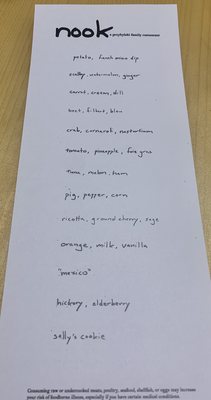 nook
a perplyishi family restaurant
potato, french onion dip
scallop, watermelon, ginger
carrot, cream, dill
beet, filbert, bleu
crab, carnaroli, nasturtium
tomato, pineapple, foie gras
tuna, melon, ham
pig, pepper, corn
ricotta, ground cherry, sage
orange, milk, vanilla
"mexico"
hickory, elderberry
sally's cookie
Consuming raw or undercooked meats, poultry, seafood, shellfish, or eggs may increase
your risk of foodborne illness, especially if you have certain medical conditions.